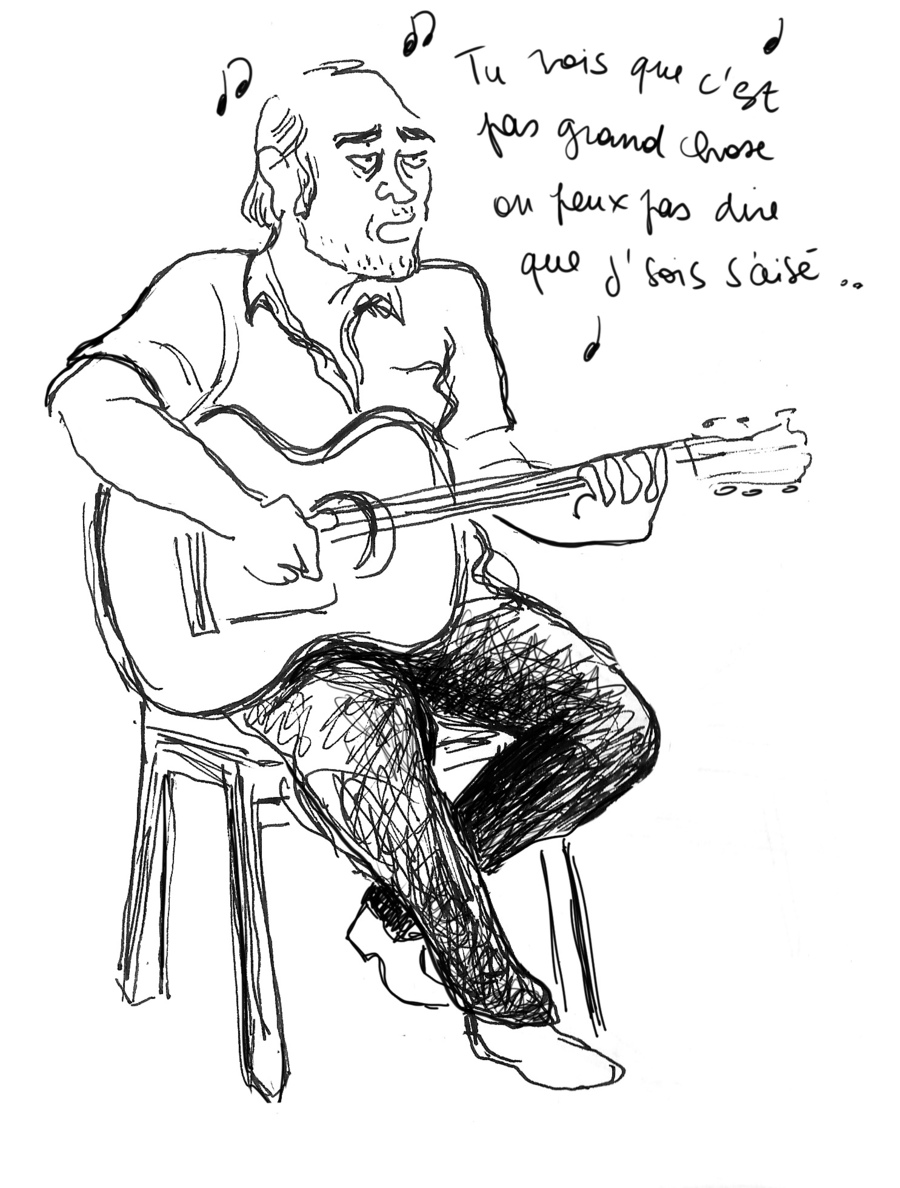 Tu vois que c'est
pas grand chose
on peux pas dire
que j'sois s'aisé ..